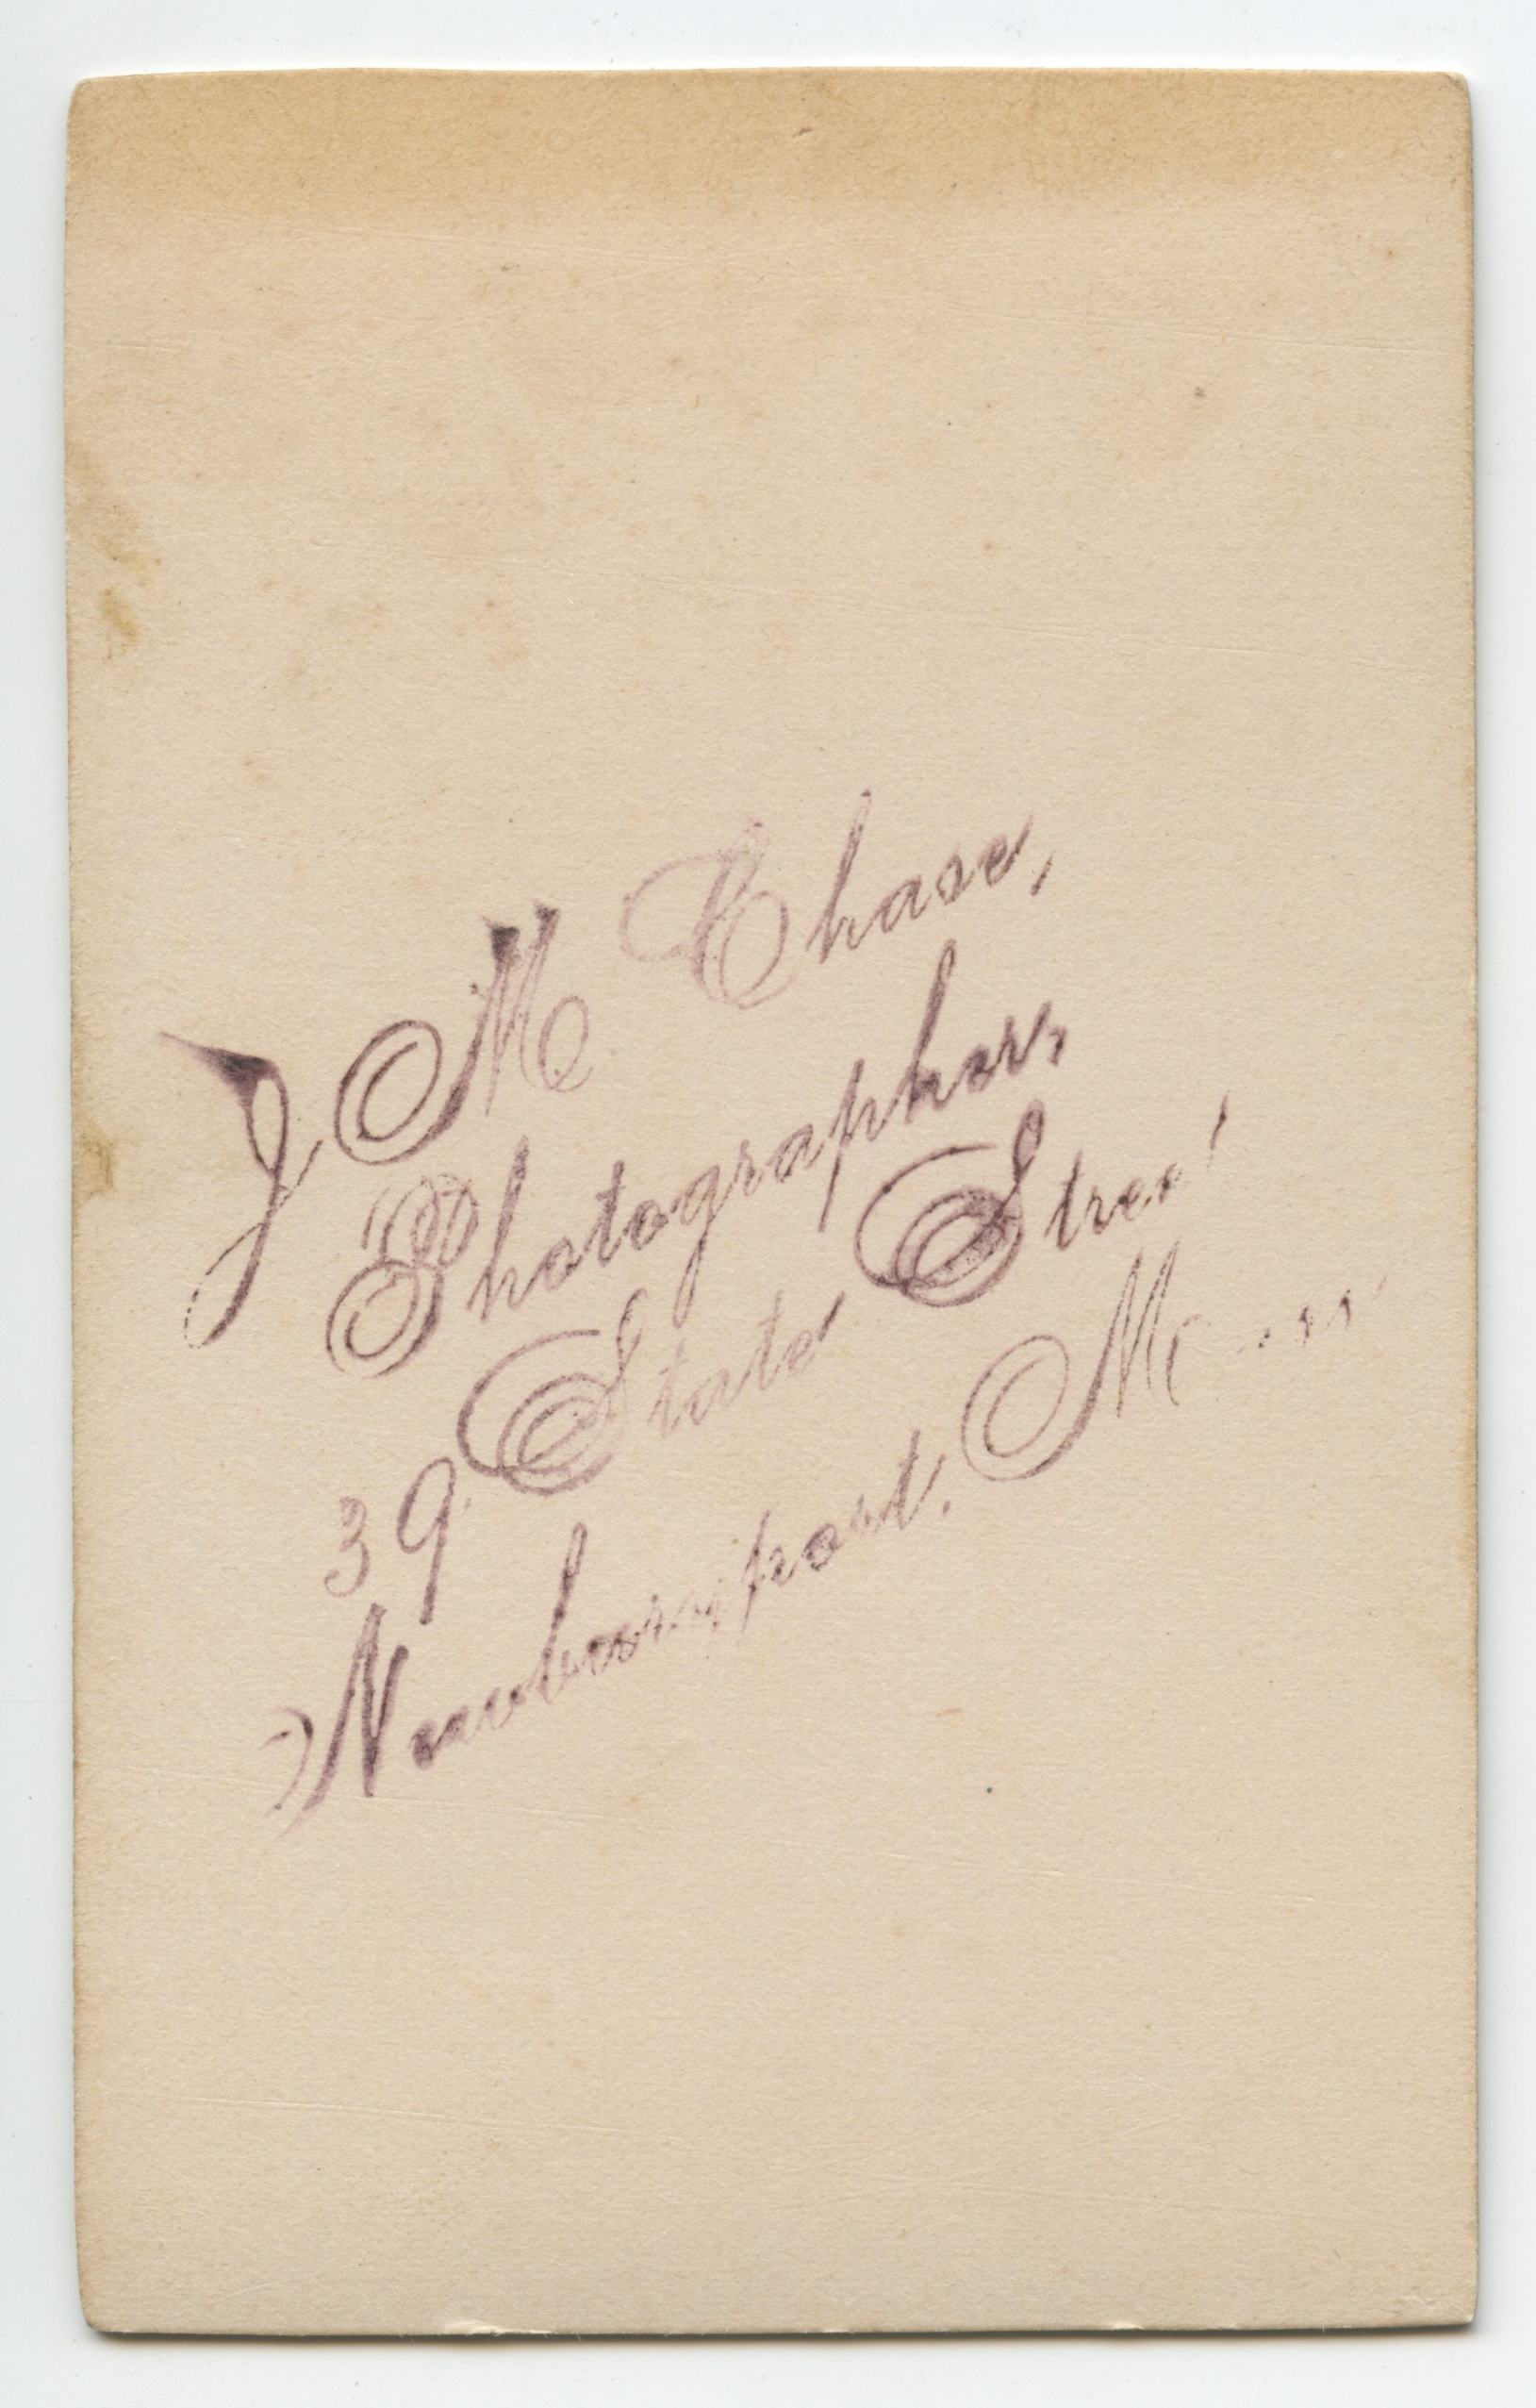 J M Chase,
Photographer,
39 State Street
Newburyport. Mass